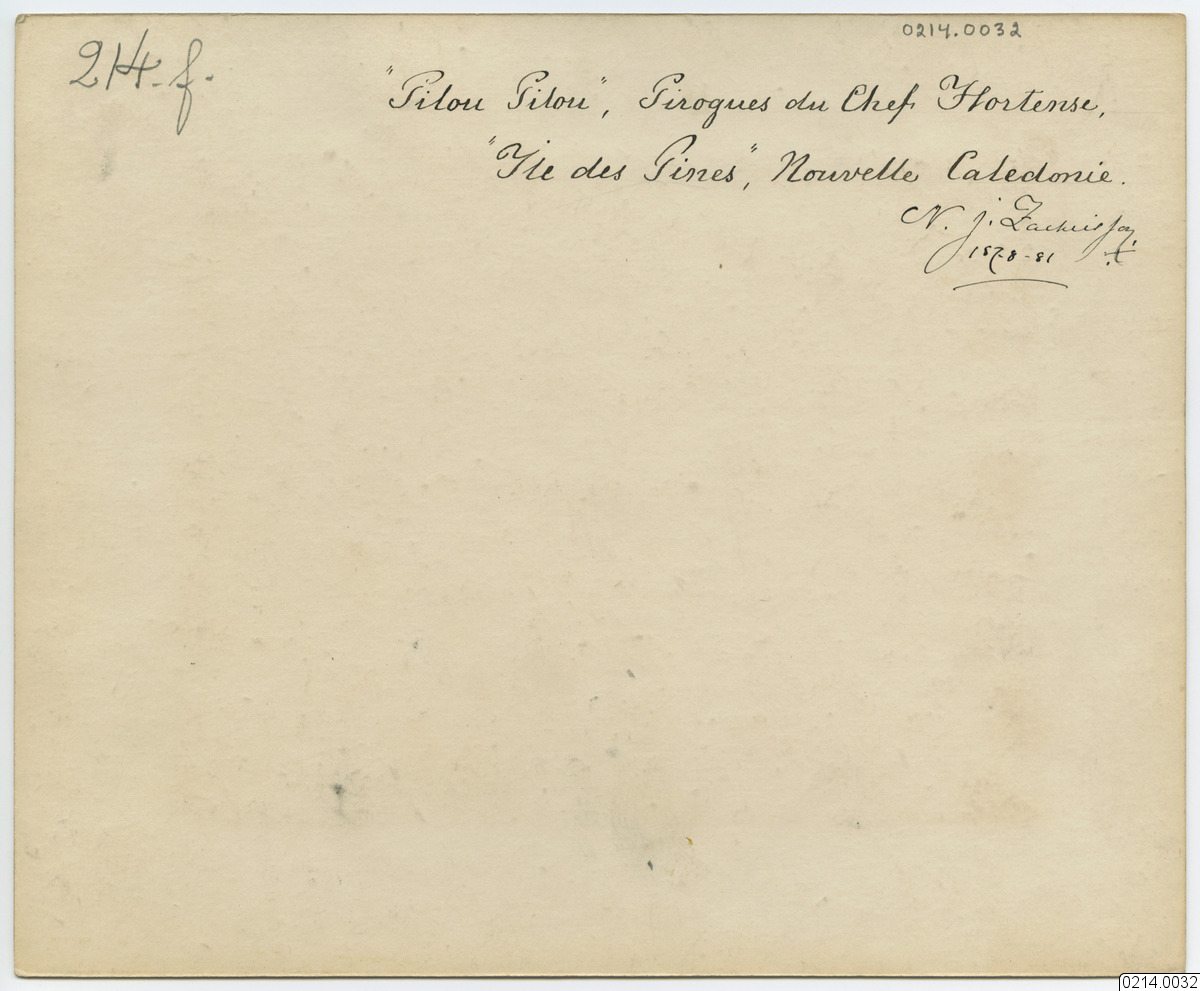 0214.0032
214. f.
"Pilou Pilou", Pirogues du Chef Hortense,
"Île des Pines", Nouvelle Caledonie.
N. J.
1878-81
0214.0032